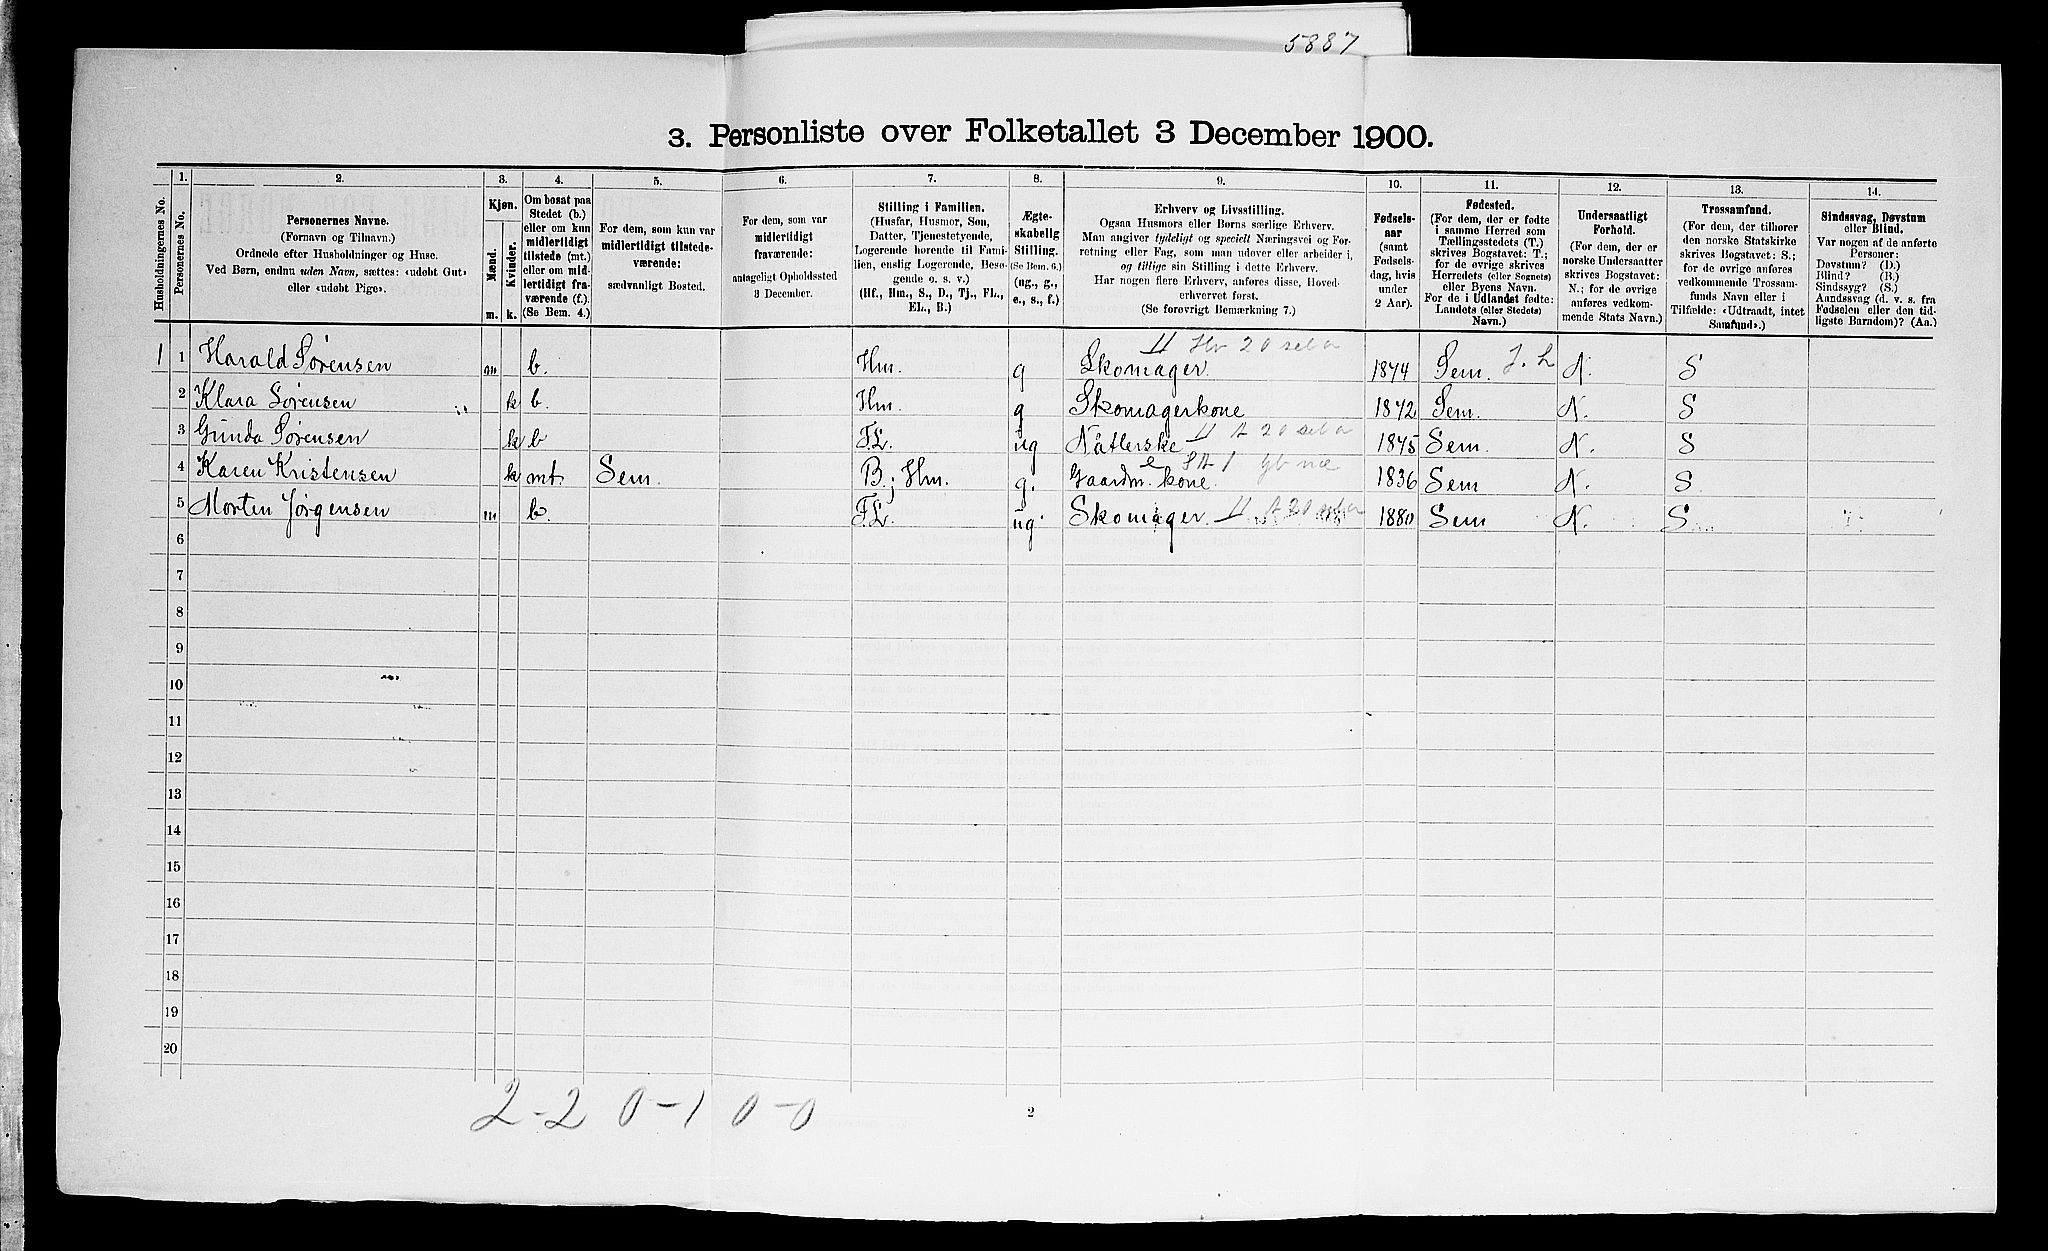 5887
3. Personliste over Folketallet 3 December 1900.
1. 2. 3. 4. 5. 6. 7. 8. 9. 10. 11. 12. 13. 14.
Husholdningernes No.
Personernes No.
Personernes Navne.
(Fornavn og Tilnavn.)
Ordnede efter Husholdninger og Huse.
Ved Børn, endnu uden Navn, sættes: «udøbt Gut»
eller «udøbt Pige».
Kjøn.
Mænd.
Kvinder.
m. k.
Om bosat paa
Stedet (b.)
eller om kun
midlertidigt
tilstede (mt.)
eller om mid-
lertidigt fra-
værende (f.).
(Se Bem. 4.)
For dem, som kun var
midlertidigt tilstede-
værende:
sædvanligt Bosted.
For dem, som var
midlertidigt
fraværende:
antageligt Opholdssted
3 December.
Stilling i Familien.
(Husfar, Husmor, Søn,
Datter, Tjenestetyende,
Logerende hørende til Fami-
lien, enslig Logerende, Besø-
gende o. s. v.)
(Hf., Hm., S., D., Tj., FL.,
EL., B.)
Ægte-
skabelig
Stilling.
(Se Bem. 6.)
(ug., g.,
e., s., f.)
Erhverv og Livsstilling.
Ogsaa Husmors eller Børns særlige Erhverv.
Man angiver tydeligt og specielt Næringsvei og For-
retning eller Fag, som man udøver eller arbeider i,
og tillige sin Stilling i dette Erhverv.
Har nogen flere Erhverv, anføres disse, Hoved-
erhvervet først.
(Se forøvrigt Bemærkning 7.)
Fødsels-
aar
(samt
Fødsels-
dag, hvis
under
2 Aar).
Fødested.
(For dem, der er fødte
i samme Herred som
Tællingsstedets (T.)
skrives Bogstavet: T.;
for de øvrige skrives
Herredets (eller Sognets)
eller Byens Navn.
For de i Udlandet fødte:
Landets (eller Stedets)
Navn.)
Undersaatligt
Forhold.
(For dem, der er
norske Undersaatter
skrives Bogstavet:
N.; for de øvrige
anføres vedkom-
mende Stats Navn.)
Trossamfund.
(For dem, der tilhører
den norske Statskirke
skrives Bogstavet: S.;
for de øvrige anføres
vedkommende Trossam-
funds Navn eller i
Tilfælde: «Udtraadt, intet
Samfund».)
Sindssvag, Døvstum
eller Blind.
Var nogen af de anførte
Personer:
Døvstum? (D.)
Blind? (B.)
Sindssyg? (S.)
Aandssvag (d. v. s. fra
Fødselen eller den tid-
ligste Barndom)? (Aa.)
1 1 Harald Sørensen m b. Hm. g Skomager 1874 Sem. N. S
2 Klara Sørensen k b. Hm. g Skomagerkone 1872 Sem. N. S
3 Gunda Sørensen k b FL. ug Nåtlerske 1875 Sem. N. S
4 Karen Kristensen k mt. Sem. B.; Hm. g. Gaardm. kone. 1836 Sem N. S
5 Morten Jørgensen m b. FL. ug. Skomager 1880 Sem N. S
6
7
8
9
10
11
12
13
14
15
16
17
18
19
20
2-2 0-1 0-0
2